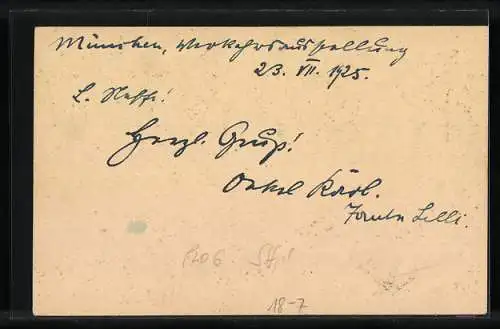 München, Verkehrsausstellung
23. VII. 1925.
L. Neffe!
Herzl. Gruß!
Onkel Karl.
Tante Lilli.
18-7